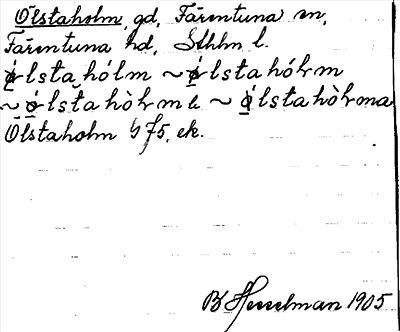 Ölstaholm, gd, Färentuna sn,
Färentuna hd, Sthlm l.
ǿlstahólm ~ ǿlstahólm
~ ǿlstahòlme ~ ǿlstahòlma
Ölstaholm 975, ek.
B Hesselman 1905